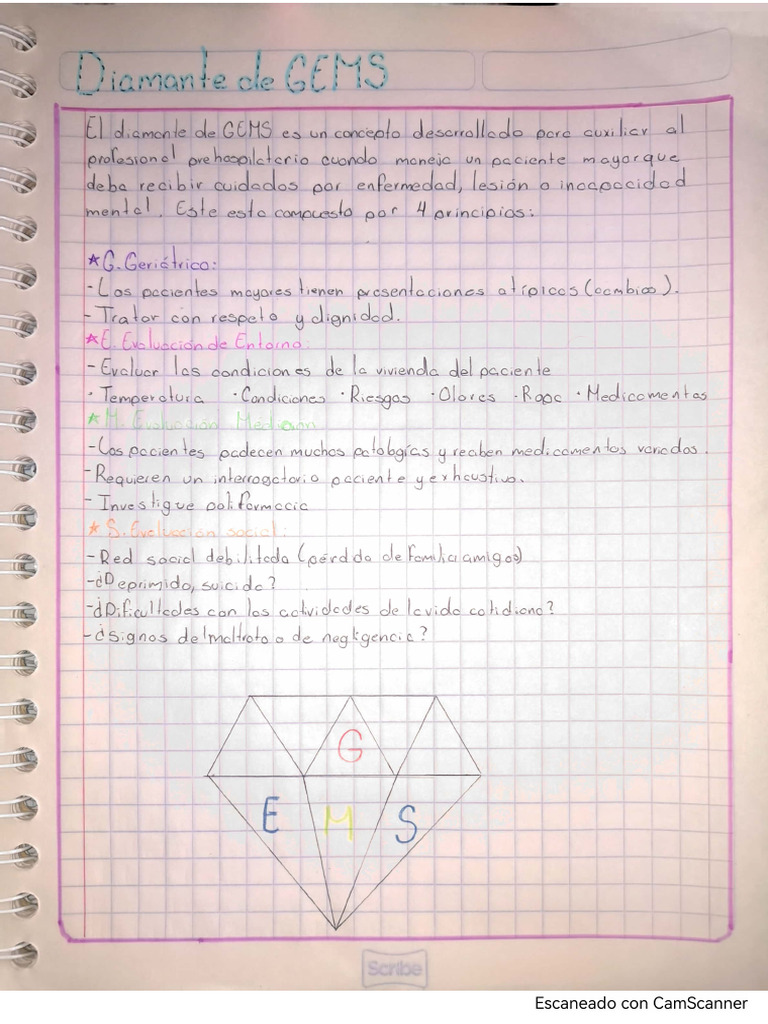 Diamante de GEMS
El diamante de GEMS es un concepto desarrollado para auxiliar al
profesional prehospilatario cuando maneja un paciente mayor que
deba recibir cuidados por enfermedad, lesión o incapacidad
mental. Este esta compuesto por 4 principios:
★G. Geriátrico:
- Los pacientes mayores tienen presentaciones atípicas (cambios).
- Tratar con respeto y dignidad.
★E. Evaluación de Entorno:
- Evaluar las condiciones de la vivienda del paciente
· Temperatura · Condiciones · Riesgos · Olores · Ropa · Medicamentos
★M. Evaluación Médica
- Los pacientes padecen muchas patologías y reciben medicamentos variados.
- Requieren un interrogatorio paciente y exhaustivo.
- Investigue polifarmacia
★ S. Evaluación social:
- Red social debilitada (pérdida de familia amigos)
- ¿Deprimido, suicida?
- ¿Dificultades con las actividades de la vida cotidiana?
- ¿signos de maltrato o de negligencia?
G
E M S
Scribe
Escaneado con CamScanner